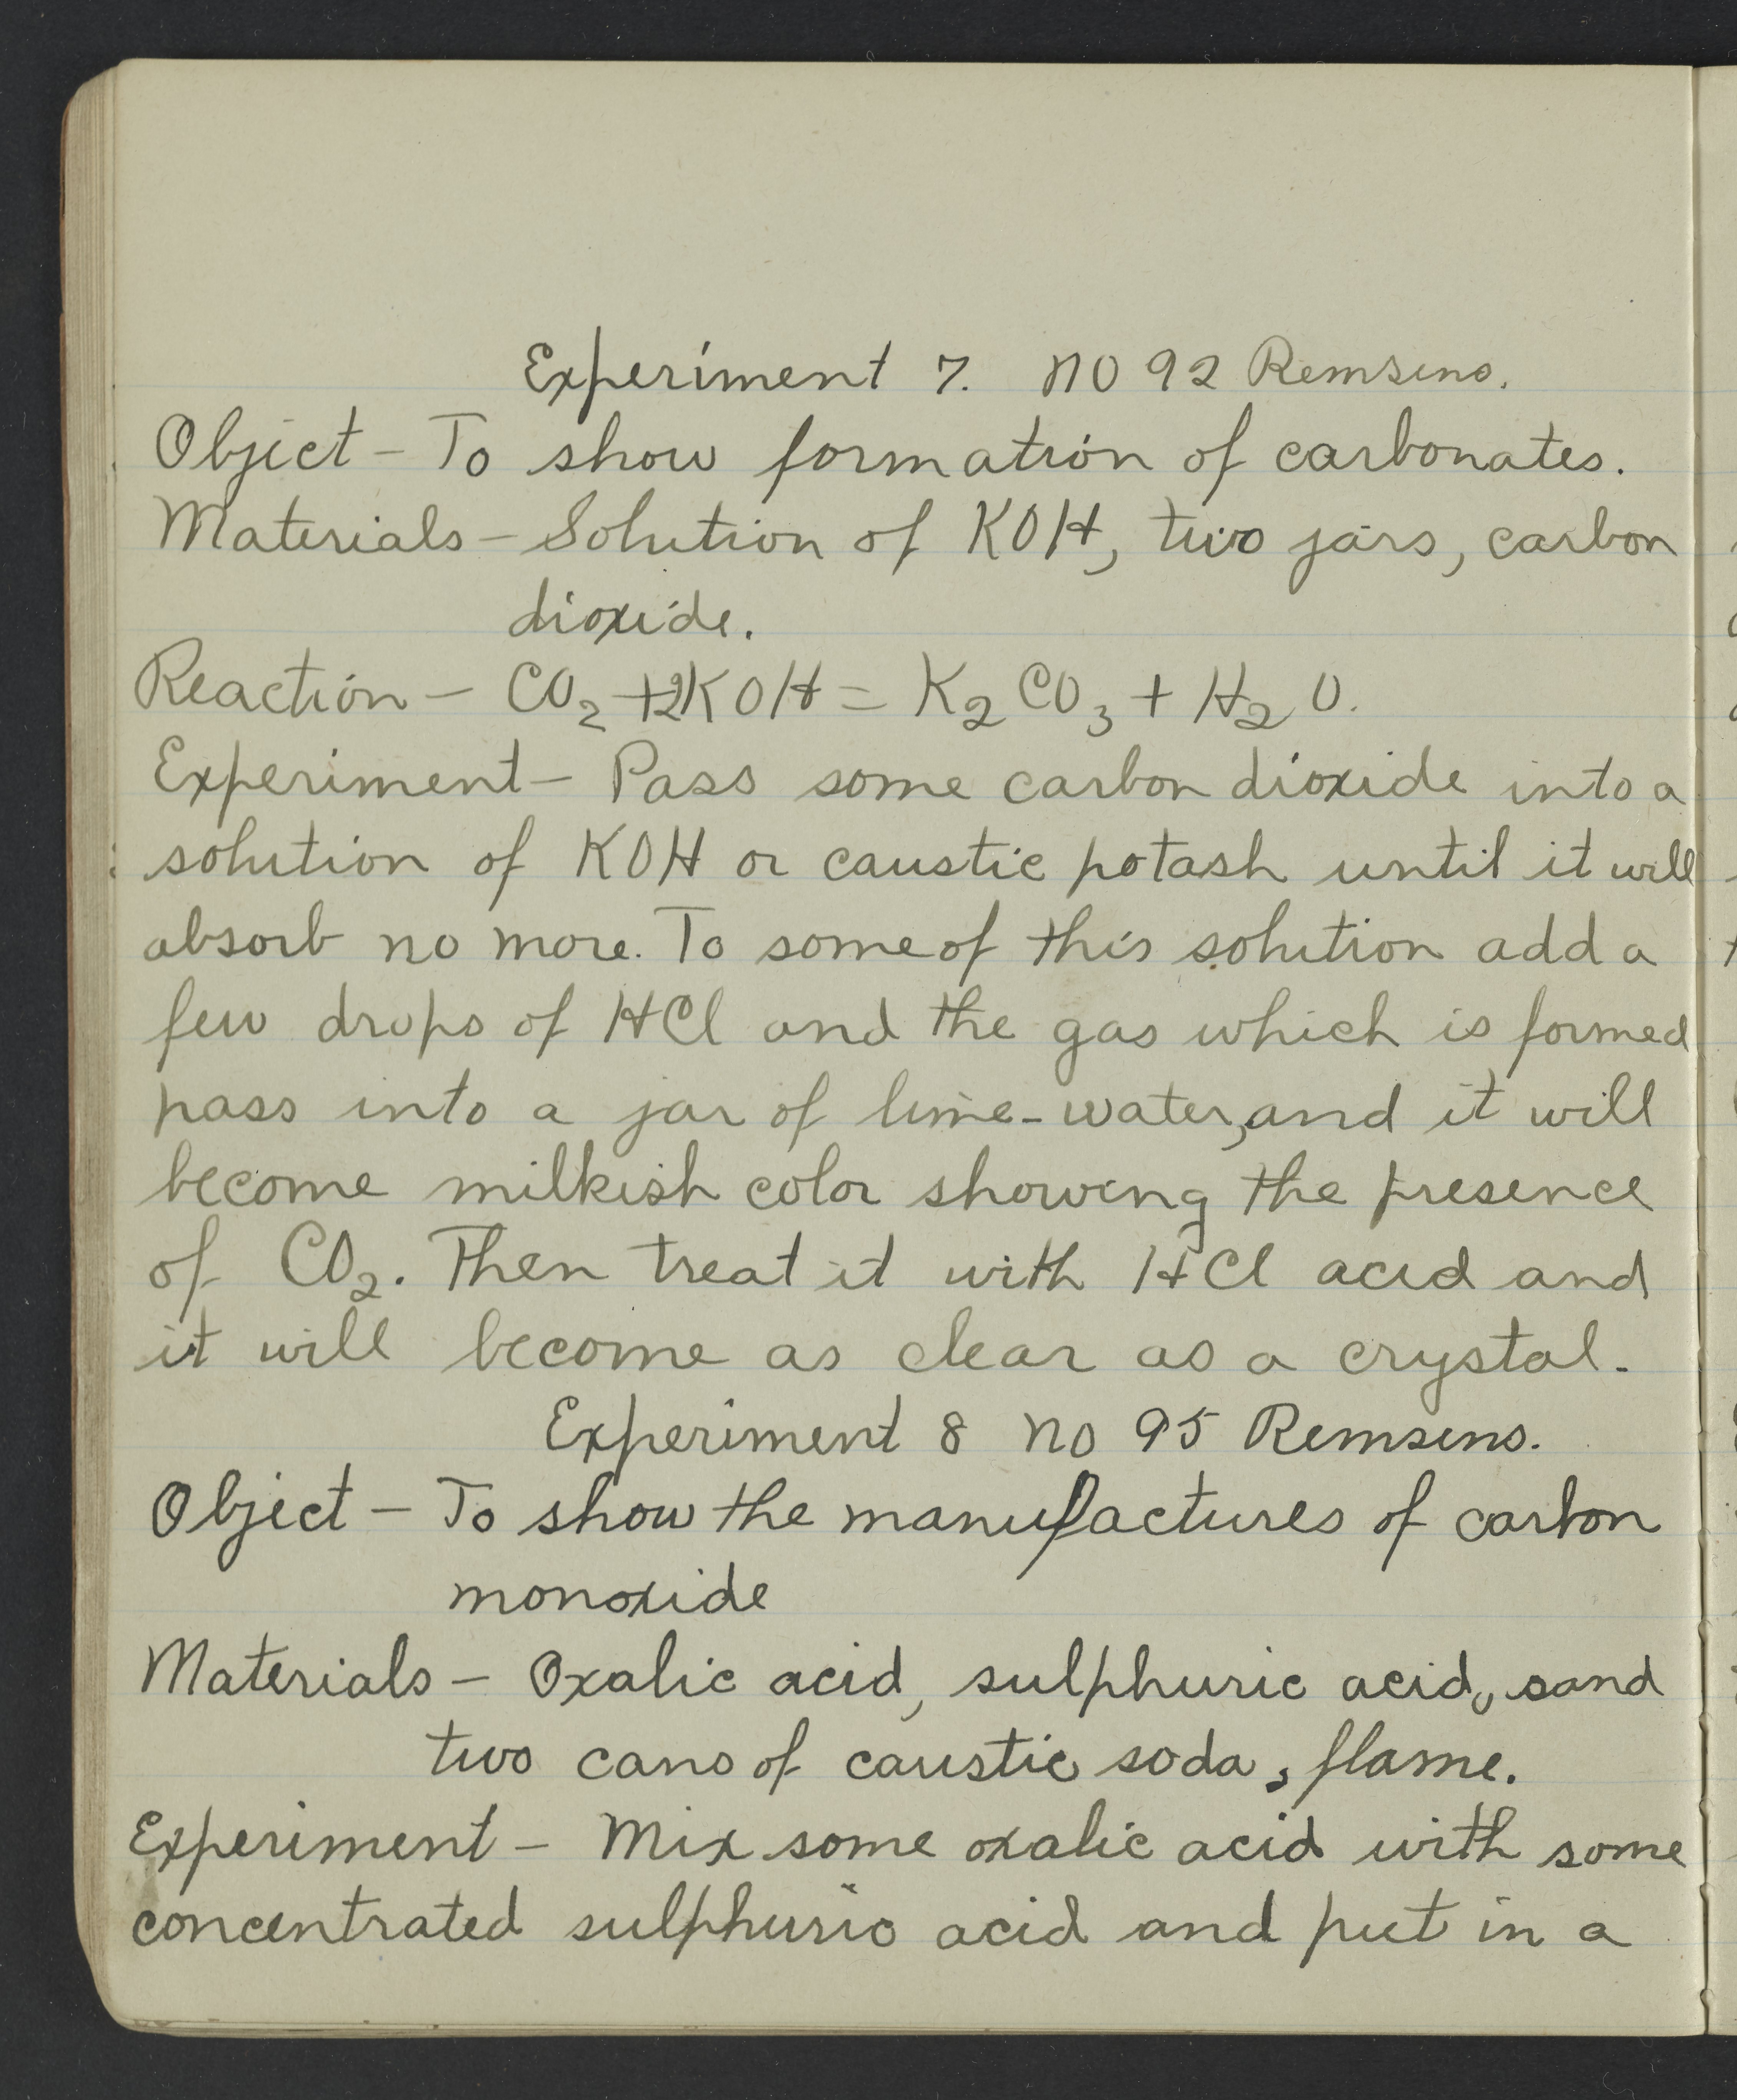 Experiment 7. no 92 Remsens.
Object - To show formation of carbonates.
Materials - Solution of KOH, two jars, carbon
dioxide.
Reaction - CO2 + 2KOH = K2CO3 + H2O.
Experiment - Pass some carbon dioxide into a
solution of KOH or caustic potash until it will
absorb no more. To some of this solution add a
few drops of HCl and the gas which is formed
pass into a jar of lime-water, and it will
become milkish color showing the presence
of CO2. Then treat it with HCl acid and
it will become as clear as a crystal.
Experiment 8 no 95 Remsens.
Object - To show the manufactures of carbon
monoxide
Materials - Oxalic acid, sulphuric acid, sand
two cans of caustic soda, flame.
Experiment - Mix some oxalic acid with some
concentrated sulphuric acid and put in a